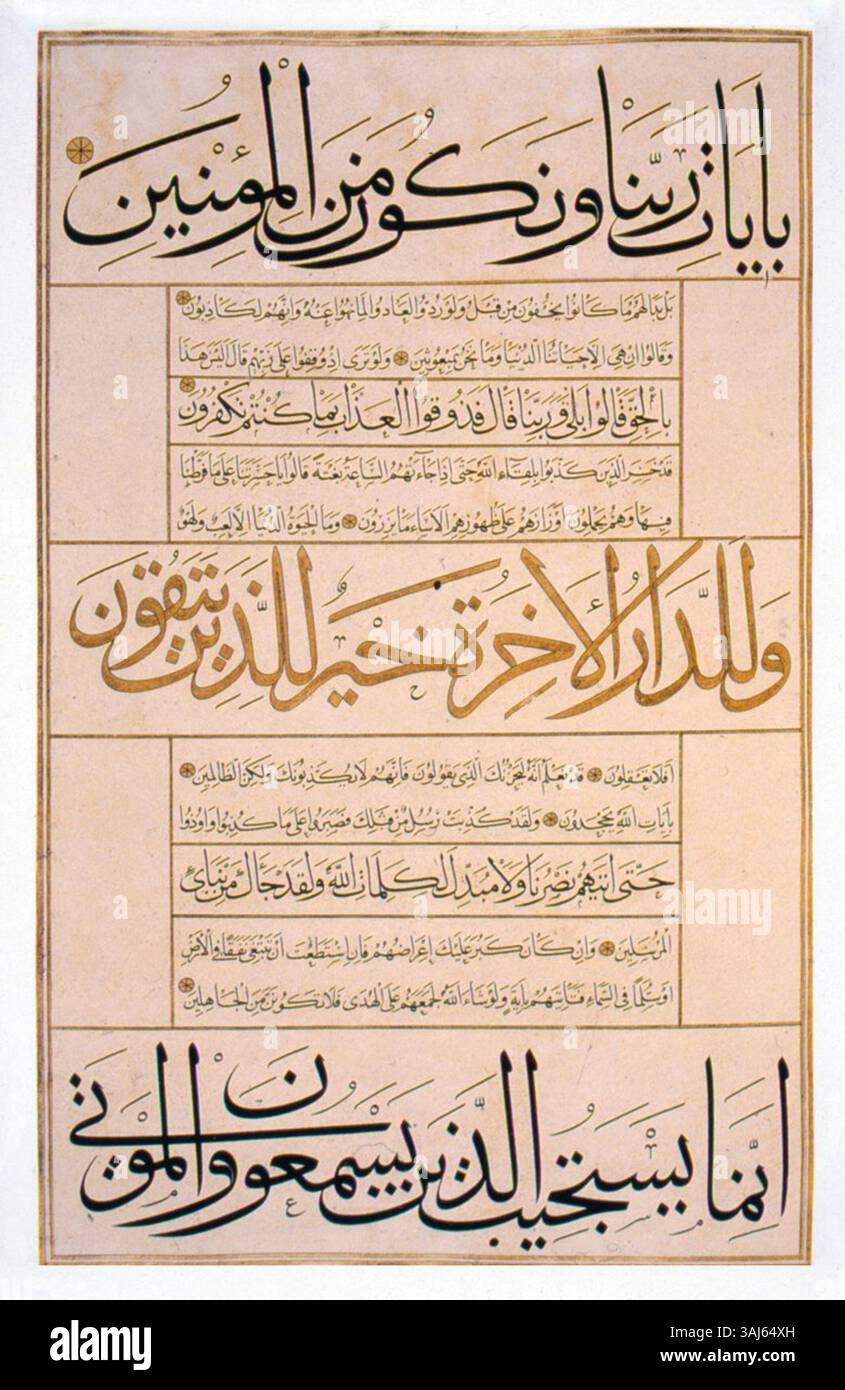 بايات ربنا ونكون من المؤمنين
بل بدا لهم ما كانوا يخفون من قبل ولو ردوا لعادوا لما نهوا عنه وانهم لكاذبون
وقالوا ان هي الا حياتنا الدنيا وما نحن بمبعوثين ولو ترى اذ وقفوا على ربهم قال اليس هذا
بالحق قالوا بلى وربنا قال فذوقوا العذاب بما كنتم تكفرون
قد خسر الذين كذبوا بلقاء الله حتى اذا جاءتهم الساعة بغتة قالوا يا حسرتنا على ما فرطنا
فيها وهم يحملون اوزارهم على ظهورهم الا ساء ما يزرون وما الحيوة الدنيا الا لعب ولهو
وللدار الأخرة خير للذين يتقون
افلا تعقلون قد نعلم انه ليحزنك الذي يقولون فانهم لا يكذبونك ولكن الظالمين
بايات الله يجحدون ولقد كذبت رسل من قبلك فصبروا على ما كذبوا واوذوا
حتى اتيهم نصرنا ولا مبدل لكلمات الله ولقد جاءك من نبائ
المرسلين وان كان كبر عليك اعراضهم فان استطعت ان تبتغي نفقا في الارض
او سلما في السماء فتاتيهم باية ولو شاء الله لجمعهم على الهدى فلا تكونن من الجاهلين
انما يستجيب الذين يسمعون والموتى
alamy
Image ID: 3AJ64XH
www.alamy.com